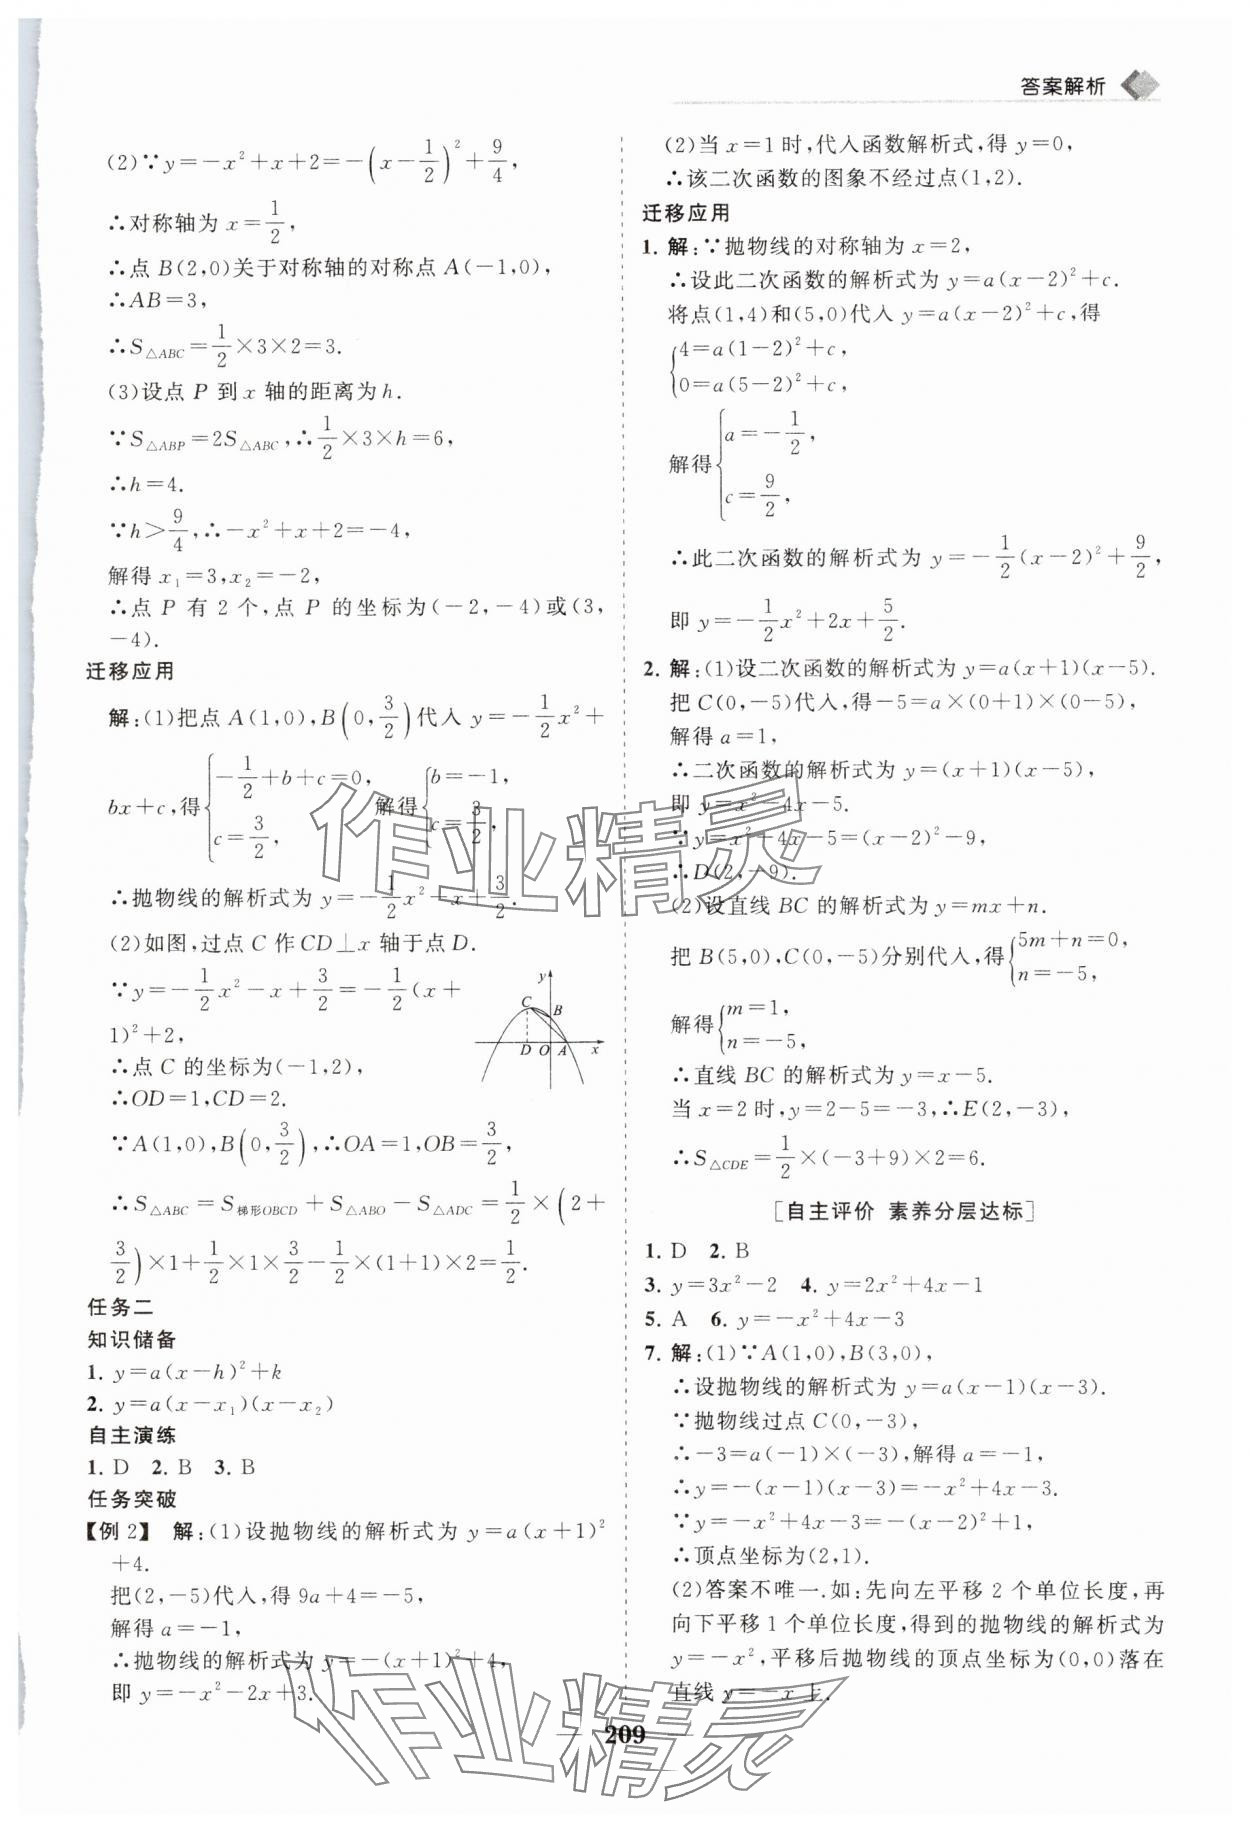 答案解析
(2)∵y=-x²+x+2=-(x-1/2)²+9/4,
∴对称轴为 x=1/2,
∴点 B(2,0)关于对称轴的对称点 A(-1,0),
∴AB=3,
∴S△ABC=1/2×3×2=3.
(3)设点 P 到 x 轴的距离为 h.
∵S△ABP=2S△ABC,∴1/2×3×h=6,
∴h=4.
∵h>9/4,∴-x²+x+2=-4,
解得 x₁=3,x₂=-2,
∴点 P 有 2 个,点 P 的坐标为(-2,-4)或(3,
-4).
迁移应用
解:(1)把点 A(1,0),B(0,3/2)代入 y=-1/2x²+
bx+c,得{-1/2+b+c=0, c=3/2, 解得{b=-1, c=3/2,
∴抛物线的解析式为 y=-1/2x²-x+3/2.
(2)如图,过点 C 作 CD⊥x 轴于点 D.
∵y=-1/2x²-x+3/2=-1/2(x+
1)²+2,
∴点 C 的坐标为(-1,2),
∴OD=1,CD=2.
y
C
B
D O A x
∵A(1,0),B(0,3/2),∴OA=1,OB=3/2,
∴S△ABC=S梯形OBCD+S△ABO-S△ADC=1/2×(2+
3/2)×1+1/2×1×3/2-1/2×(1+1)×2=1/2.
任务二
知识储备
1. y=a(x-h)²+k
2. y=a(x-x₁)(x-x₂)
自主演练
1. D 2. B 3. B
任务突破
【例 2】 解:(1)设抛物线的解析式为 y=a(x+1)²
+4.
把(2,-5)代入,得 9a+4=-5,
解得 a=-1,
∴抛物线的解析式为 y=-(x+1)²+4,
即 y=-x²-2x+3.
(2)当 x=1 时,代入函数解析式,得 y=0,
∴该二次函数的图象不经过点(1,2).
迁移应用
1. 解:∵抛物线的对称轴为 x=2,
∴设此二次函数的解析式为 y=a(x-2)²+c.
将点(1,4)和(5,0)代入 y=a(x-2)²+c,得
{4=a(1-2)²+c,
0=a(5-2)²+c,
解得{a=-1/2, c=9/2,
∴此二次函数的解析式为 y=-1/2(x-2)²+9/2,
即 y=-1/2x²+2x+5/2.
2. 解:(1)设二次函数的解析式为 y=a(x+1)(x-5).
把 C(0,-5)代入,得-5=a×(0+1)×(0-5),
解得 a=1,
∴二次函数的解析式为 y=(x+1)(x-5),
即 y=x²-4x-5.
∵y=x²-4x-5=(x-2)²-9,
∴D(2,-9).
(2)设直线 BC 的解析式为 y=mx+n.
把 B(5,0),C(0,-5)分别代入,得{5m+n=0, n=-5,
解得{m=1, n=-5,
∴直线 BC 的解析式为 y=x-5.
当 x=2 时,y=2-5=-3,∴E(2,-3),
∴S△CDE=1/2×(-3+9)×2=6.
[自主评价 素养分层达标]
1. D 2. B
3. y=3x²-2 4. y=2x²+4x-1
5. A 6. y=-x²+4x-3
7. 解:(1)∵A(1,0),B(3,0),
∴设抛物线的解析式为 y=a(x-1)(x-3).
∵抛物线过点 C(0,-3),
∴-3=a(-1)×(-3),解得 a=-1,
∴y=-(x-1)(x-3)=-x²+4x-3.
∵y=-x²+4x-3=-(x-2)²+1,
∴顶点坐标为(2,1).
(2)答案不唯一.如:先向左平移 2 个单位长度,再
向下平移 1 个单位长度,得到的抛物线的解析式为
y=-x²,平移后抛物线的顶点坐标为(0,0)落在
直线 y=-x 上.
209
作业精灵
作业精灵